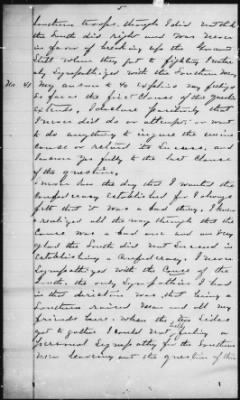 5
Southern troops, though I did not think
the South did right and was never
in favor of breaking up the Government
Still when they got to fighting I natur-
ally sympathized with the Southern men
No. 41 My answer to 40 explains my feelings
as far as the first clause of this question
extends, I declare positively that
I never did do or attempt or want
to do anything to injure the union
cause or retard its success, and
I answer yes fully to the last clause
of the question.
I never saw the day that I wanted the
Confederacy established for I always
felt that it was a bad thing. I have
realized all the way through that the
cause was a bad one and am very
glad the South did not succeed in
establishing a Confederacy. I never
sympathized with the cause of the
South, the only sympathies I had
in that direction was that being a
Southern raised man and all my
friends here. When the two sides
got together I could not help feeling a
personal sympathy for the Southern
men leaving out the question of the